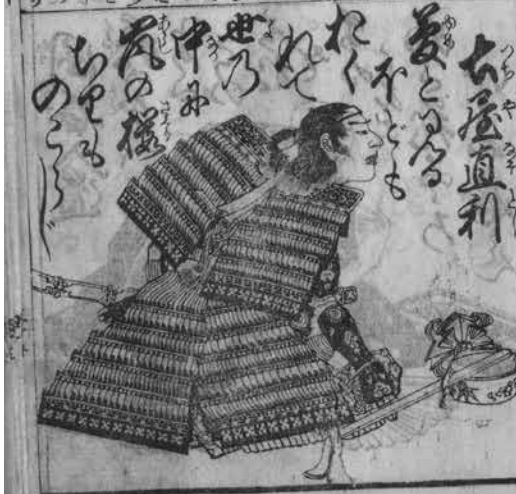 土屋直利
夢とみる
ほども
おく
れて
世乃
中に
嵐の櫻
ちりも
のこらじ